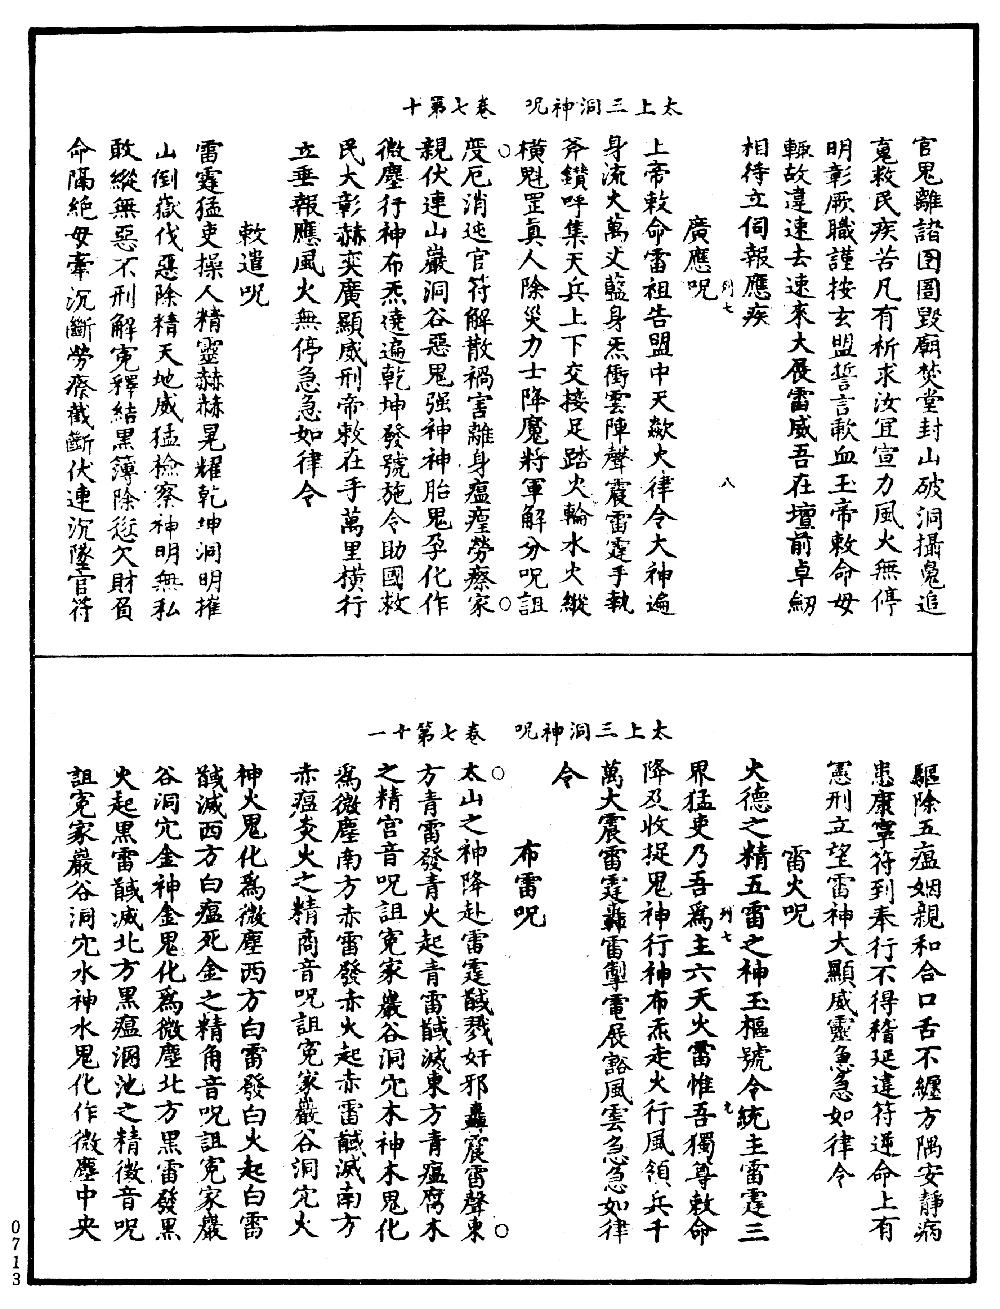 太上三洞神呪　卷七第十
官鬼離諸囹圄毀廟焚堂封山破洞攝䰟追
䰟救民疾苦凡有祈求汝宜宣力風火無停
明彰厥職謹按玄盟誓言歃血玉帝敕命毋
輙故違速去速來大展雷威吾在壇前卓劒
相待立伺報應疾
列七
廣應呪
八
上帝敕命雷祖告盟中天歘火律令大神遍
身流火萬丈藍身炁衝雲陣聲震雷霆手執
斧鑽呼集天兵上下交接足踏火輪水火縱
橫魁罡真人除災力士降魔將軍解分呪詛
度厄消迍官符解散禍害離身瘟㾮勞瘵家
親伏連山巖洞谷惡鬼强神神胎鬼孕化作
微塵行神布炁遶遍乾坤發號施令助國救
民大彰赫奕廣顯威刑帝敕在手萬里橫行
立垂報應風火無停急急如律令
敕遣呪
雷霆猛吏操人精靈赫赫晃耀乾坤洞明摧
山倒嶽伐惡除精天地威猛檢察神明無私
敢縱無惡不刑解寃釋結黑簿除愆欠財負
命隔絕毋牽沉斷勞瘵截斷伏連沉墜官符
太上三洞神呪　卷七第十一
驅除五瘟姻親和合口舌不纏方隅安靜病
患康寧符到奉行不得稽延違符逆命上有
憲刑立望雷神大顯威靈急急如律令
雷火呪
火德之精五雷之神玉樞號令統主雷霆三
列七　九
界猛吏乃吾爲主六天火雷惟吾獨尊敕命
降及收捉鬼神行神布炁走火行風領兵千
萬大震雷霆轟雷掣電展豁風雲急急如律
令
布雷呪
太山之神降赴雷霆馘戮奸邪轟震雷聲東
方青雷發青火起青雷馘滅東方青瘟腐木
之精宮音呪詛寃家巖谷洞穴木神木鬼化
爲微塵南方赤雷發赤火起赤雷馘滅南方
赤瘟炎火之精商音呪詛寃家巖谷洞穴火
神火鬼化爲微塵西方白雷發白火起白雷
馘滅西方白瘟死金之精角音呪詛寃家巖
谷洞穴金神金鬼化爲微塵北方黑雷發黑
火起黑雷馘滅北方黑瘟溷池之精徵音呪
詛寃家巖谷洞穴水神水鬼化作微塵中央
0713